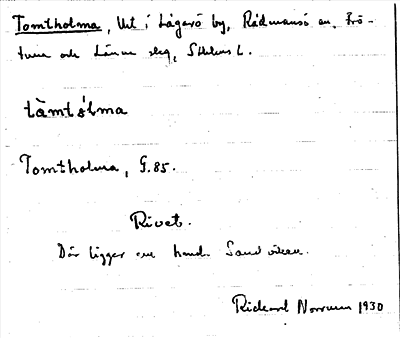 Tomtholma, Ut i Lågarö by, Rådmansö sn, Frö-
tuna och Länna skg, Sthlms l.
tàmtólma
Tomtholma, G. 85.
Rivet.
Där ligger en Sandviken.
Rickard Norman 1930